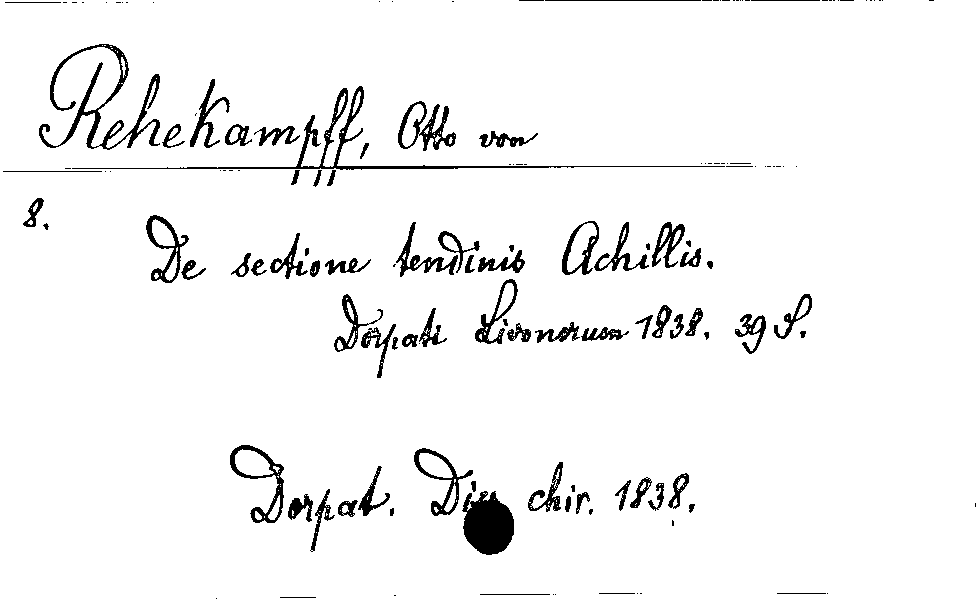 Rehekampff, Otto von
8.
De sectione tendinis Achillis.
Dorpati Livonorum 1838. 39 S.
Dorpat. Diss chir. 1838.